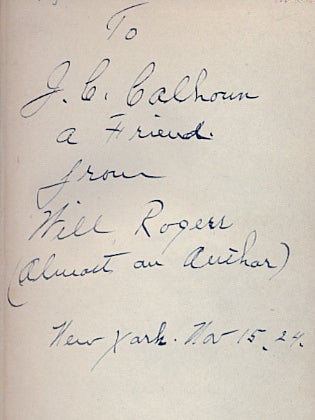 To
J. C. Calhoun
a Friend.
from
Will Rogers
(Almost an Author)
New York. Nov 15, 24.